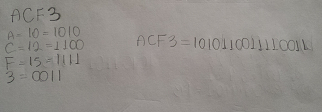 ACF3
A=10=1010
C=12=1100
F=15=1111
3=0011
ACF3=1010110011110011